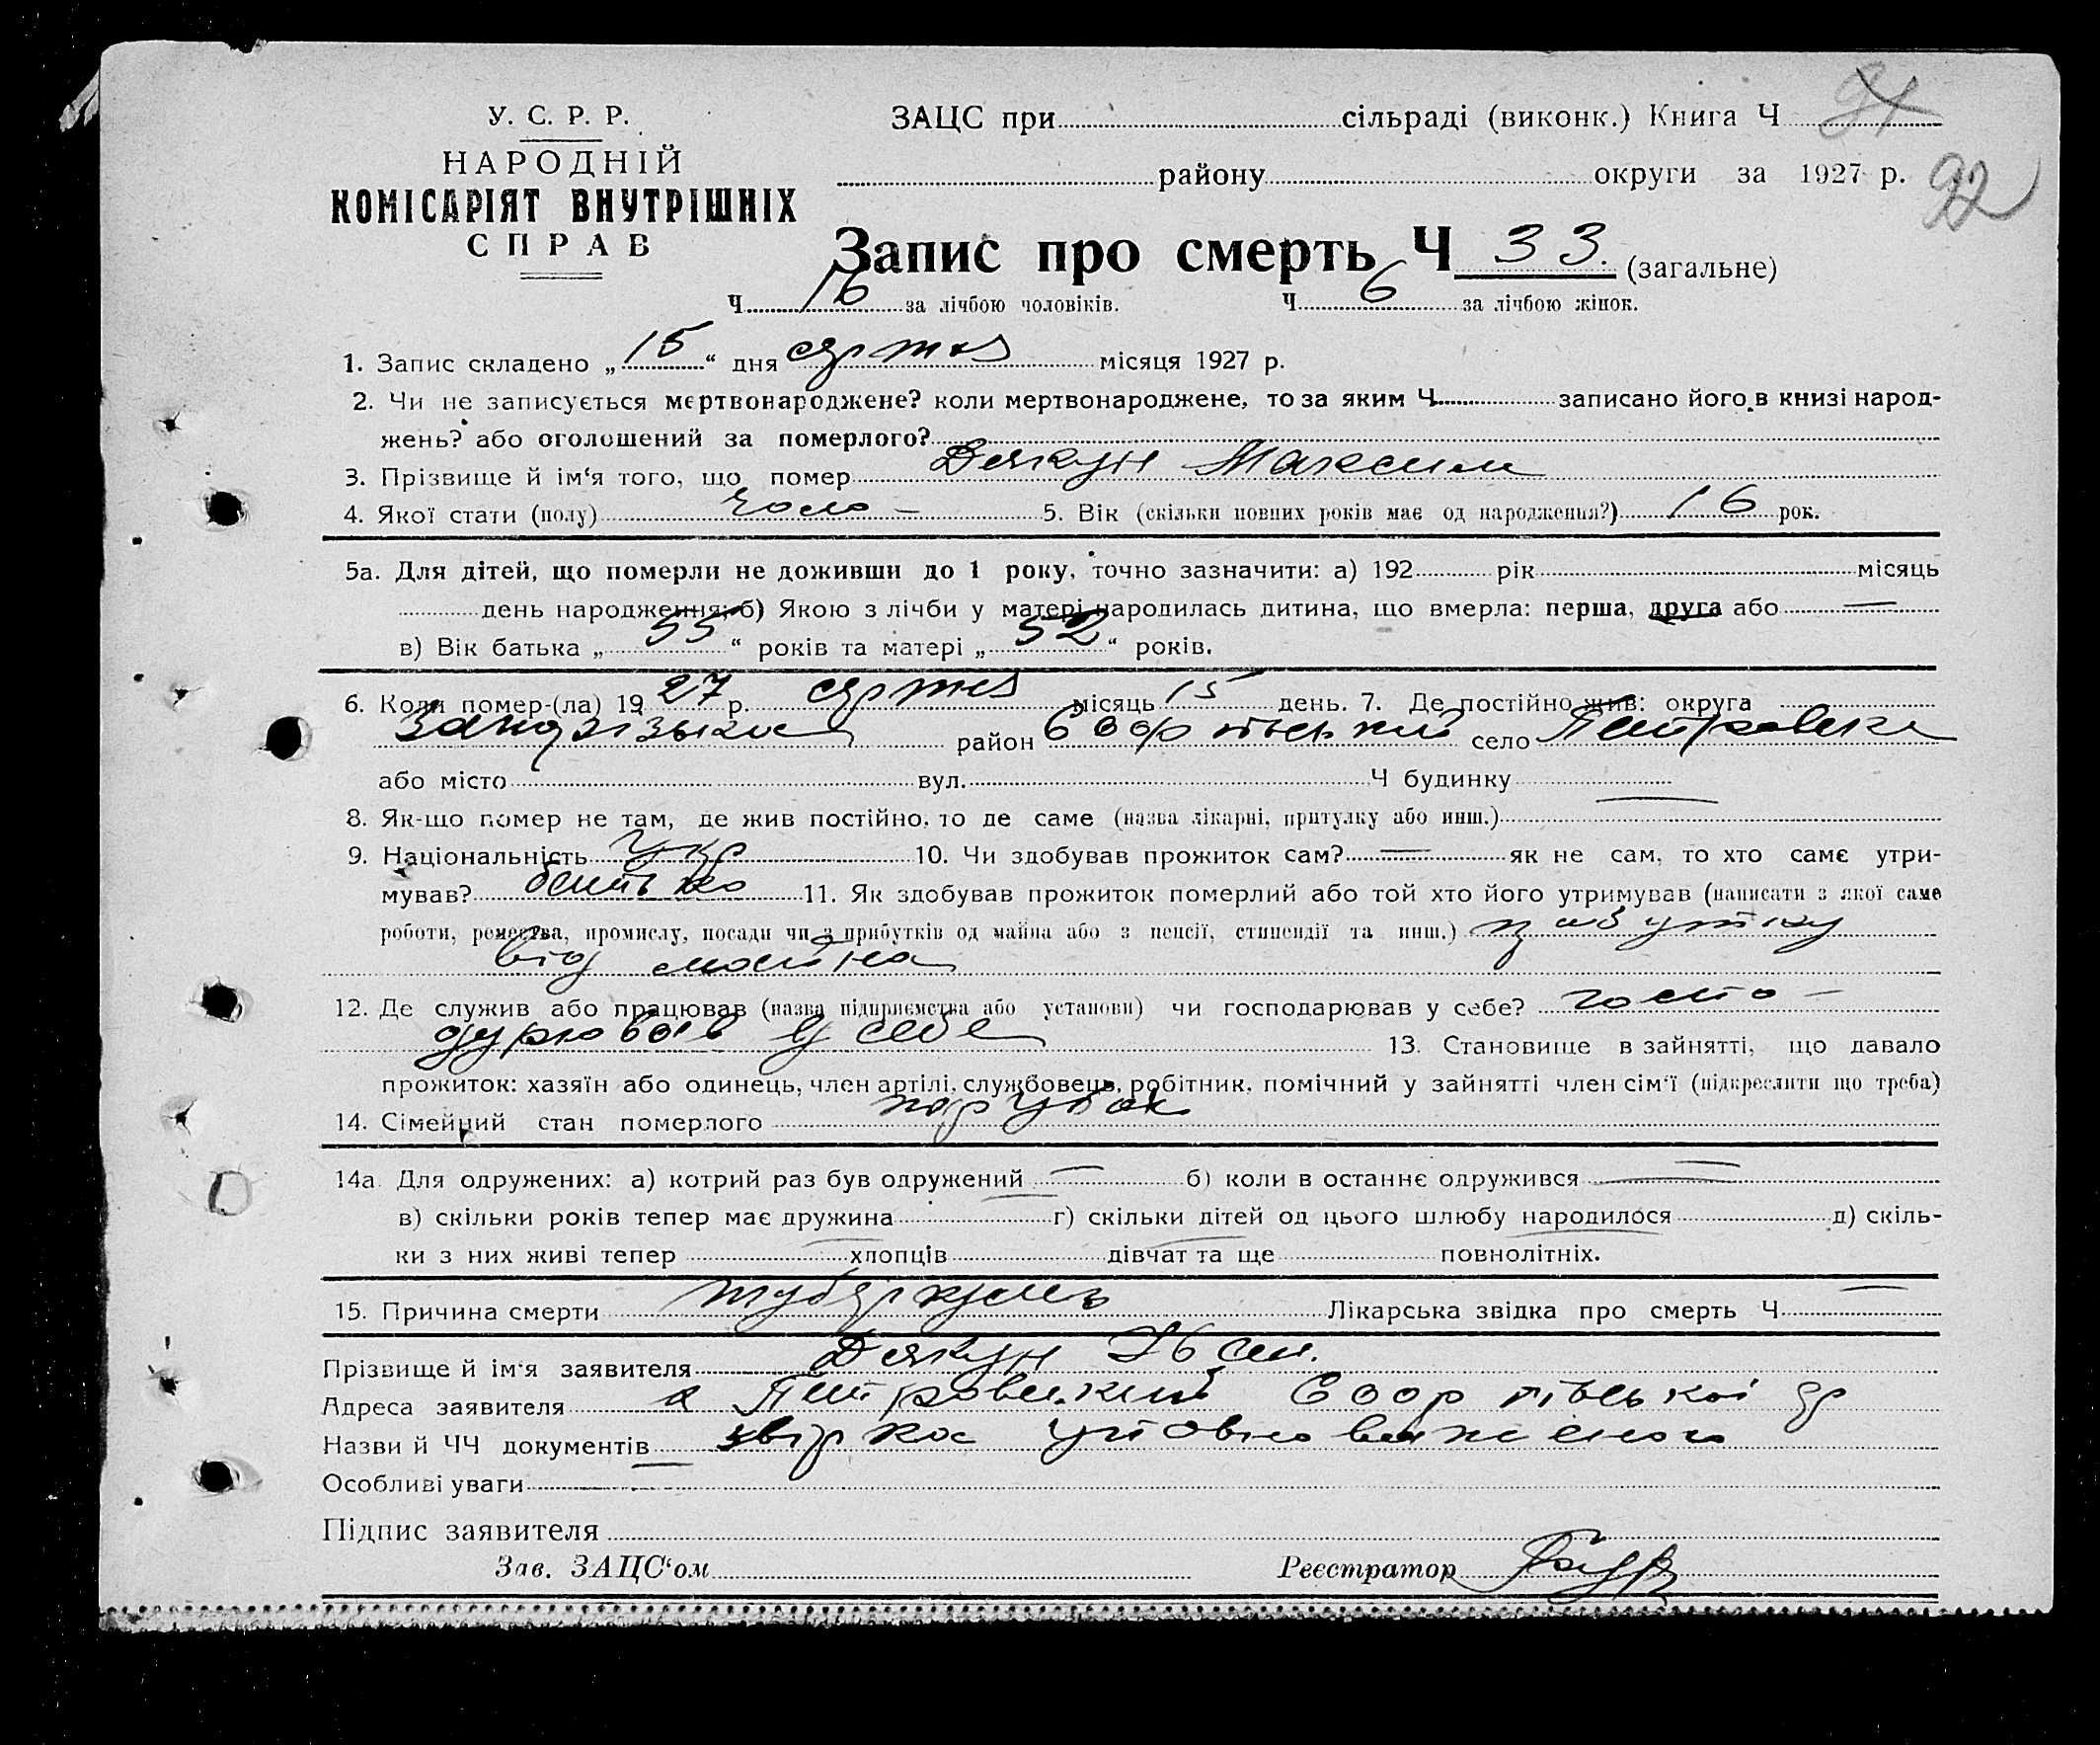 91
92
У. С. Р. Р.
НАРОДНІЙ
КОМІСАРІЯТ ВНУТРІШНІХ
СПРАВ
ЗАЦС при сільраді (виконк.) Книга Ч
району округи за 1927 р.
Запис про смерть Ч 33. (загальне)
Ч 16 за лічбою чоловіків. Ч 6 за лічбою жінок.
1. Запис складено „15“ дня місяця 1927 р.
2. Чи не записується мертвонароджене? коли мертвонароджене, то за яким Ч записано його в книзі народ-
жень? або оголошений за померлого?
3. Прізвище й ім'я того, що помер Деякун Максим
4. Якої стати (полу) Чоло- 5. Вік (скільки повних років має од народження?) 16 рок.
5а. Для дітей, що померли не доживши до 1 року, точно зазначити: а) 192 рік місяць
день народження; б) Якою з лічби у матері народилась дитина, що вмерла: перша, друга або —
в) Вік батька „55“ років та матері „52“ років.
6. Коли помер-(ла) 1927 р. місяць 15 день. 7. Де постійно жив: округа
район село Петровка
або місто вул. Ч будинку
8. Як-що помер не там, де жив постійно, то де саме (назва лікарні, притулку або инш.)
9. Національність Укр 10. Чи здобував прожиток сам? — як не сам, то хто саме утри-
мував? батько 11. Як здобував прожиток померлий або той хто його утримував (написати з якої саме
роботи, ремества, промислу, посади чи з прибутків од майна або з пенсії, стипендії та инш.)
від майна
12. Де служив або працював (назва підприємства або установи) чи господарював у себе? госпо-
дурював у себе 13. Становище в зайнятті, що давало
прожиток: хазяїн або одинець, член артілі, службовець, робітник, помічний у зайнятті член сім'ї (підкреслити що треба)
14. Сімейний стан померлого парубок
14а. Для одружених: а) котрий раз був одружений — б) коли в останнє одружився —
в) скільки років тепер має дружина г) скільки дітей од цього шлюбу народилося д) скіль-
ки з них живі тепер хлопців дівчат та ще повнолітніх.
15. Причина смерти туберкульо Лікарська звідка про смерть Ч —
Прізвище й ім'я заявителя Деякун
Адреса заявителя
Назви й ЧЧ документів
Особливі уваги
Підпис заявителя
Зав. ЗАЦС'ом Реєстратор